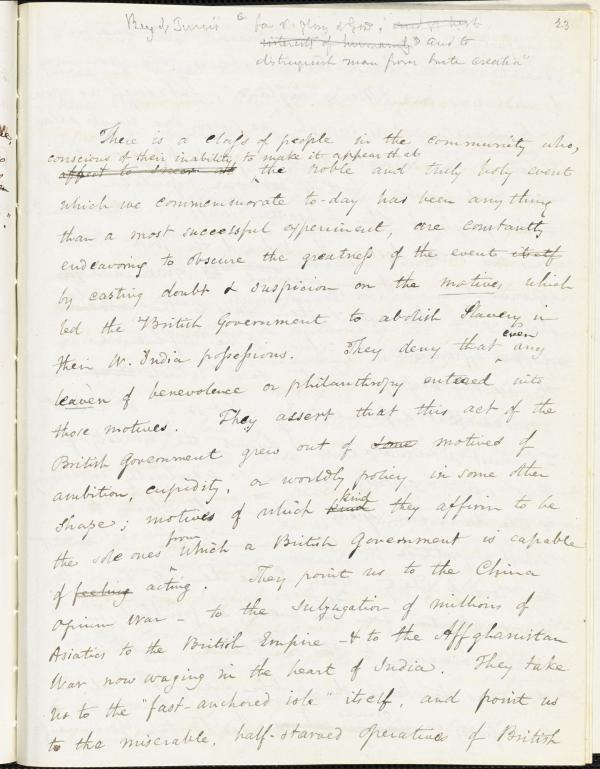 23
for ye glory of God; and ye best
interests of humanity and to
distinguish man from brute creation"
There is a class of people in the community who,
conscious of their inability to make it appear that
affect to sneer at the noble and truly holy event
which we commemorate to-day has been any thing
than a most successful experiment, are constantly
endeavoring to obscure the greatness of the event itself
by casting doubt & suspicion on the motives which
led the British Government to abolish Slavery in
their W. India possessions. They deny that even any
leaven of benevolence or philanthropy entered into
those motives. They assert that this act of the
British Government grew out of some motives of
ambition, cupidity, or worldly policy in some other
shape; motives of which kind they affirm to be
the sole ones from which a British Government is capable
of feeling acting. They point us to the China
Opium War - to the subjugation of millions of
Asiatics to the British Empire - & to the Affghanistan
War now waging in the heart of India. They take
us to the "fast-anchored isle" itself, and point us
to the miserable, half-starved operatives of British